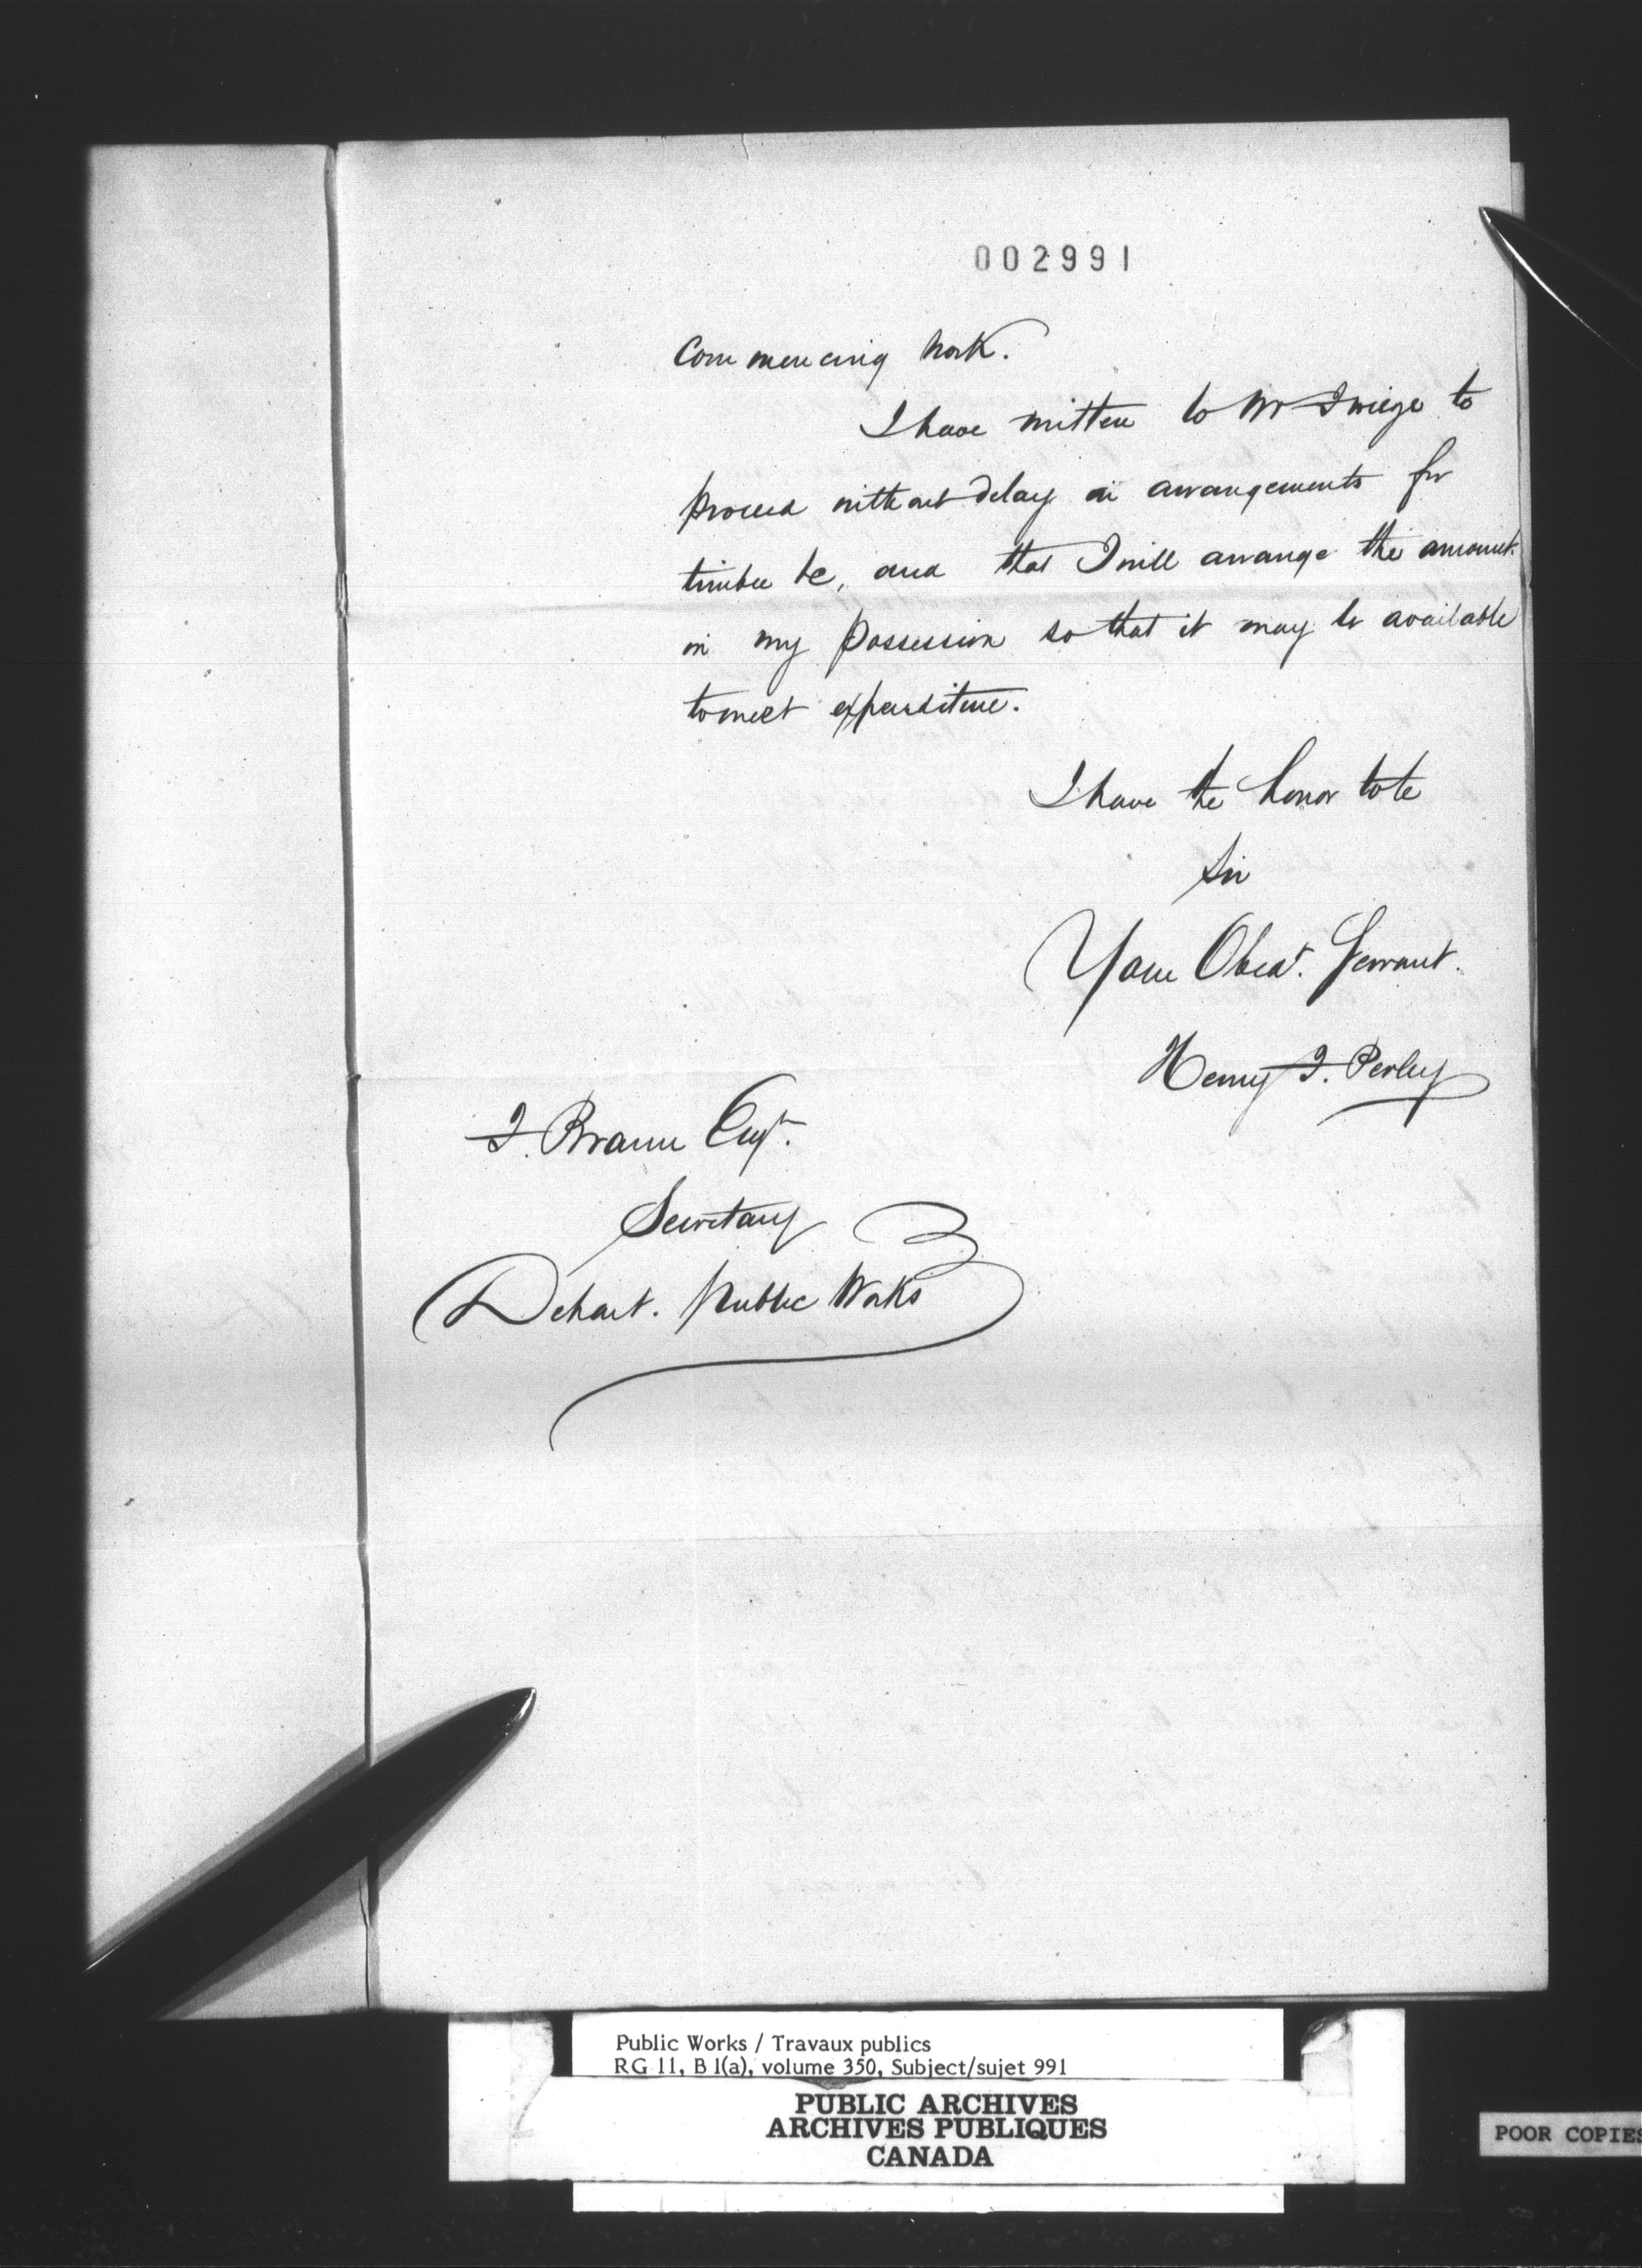 002991
Commencing work.
I have written to Mr
to
proceed without delay in arrangements for
timber &c, and that I will arrange the amount
in my possession so that it may be available
to meet expenditure.
I have the honor to be
Sir
Your Obedt. Servant.
Henry F. Perley
F. Braun Esqr.
Secretary
Depart. Public Works
Public Works / Travaux publics
RG 11, B 1(a), volume 350, Subject/sujet 991
PUBLIC ARCHIVES
ARCHIVES PUBLIQUES
CANADA
POOR COPIES